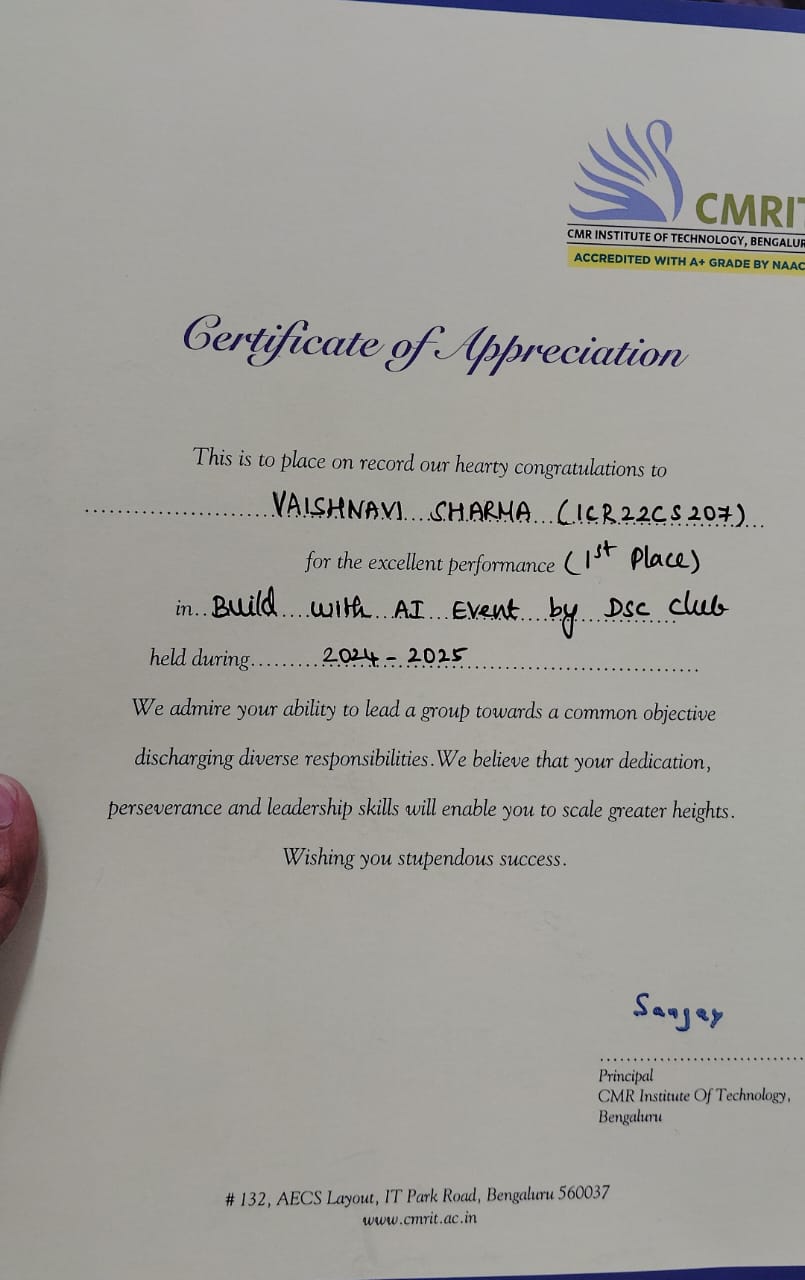 CMRIT
CMR INSTITUTE OF TECHNOLOGY, BENGALUR
ACCREDITED WITH A+ GRADE BY NAAC
Certificate of Appreciation
This is to place on record our hearty congratulations to
VAISHNAVI SHARMA (1CR22CS207)
for the excellent performance (1st Place)
in.. Build with AI Event by DSC club
held during 2024 - 2025
We admire your ability to lead a group towards a common objective
discharging diverse responsibilities. We believe that your dedication,
perseverance and leadership skills will enable you to scale greater heights.
Wishing you stupendous success.
Sanjay
Principal
CMR Institute Of Technology,
Bengaluru
# 132, AECS Layout, IT Park Road, Bengaluru 560037
www.cmrit.ac.in